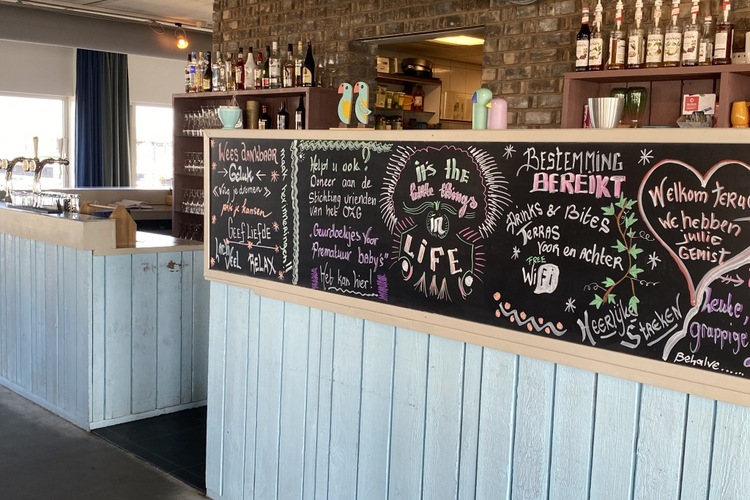 Wees dankbaar
Geluk
Volg je dromen
Geef Liefde
RELAX
Helpt u ook!
Doneer aan de
Stichting vrienden
van het OZG
"Geurdoekjes voor
Prematuur baby's"
Het kan hier!
it's the
little things
in
LIFE
BESTEMMING
BEREIKT
DRiNKS & BiTES
TERRAS
VOOR EN ACHTER
FREE
WiFi
HEERLijKE
STREKEN
Welkom Terug
We hebben
jullie
GEMIST
Leuke,
grappige
Behalve......